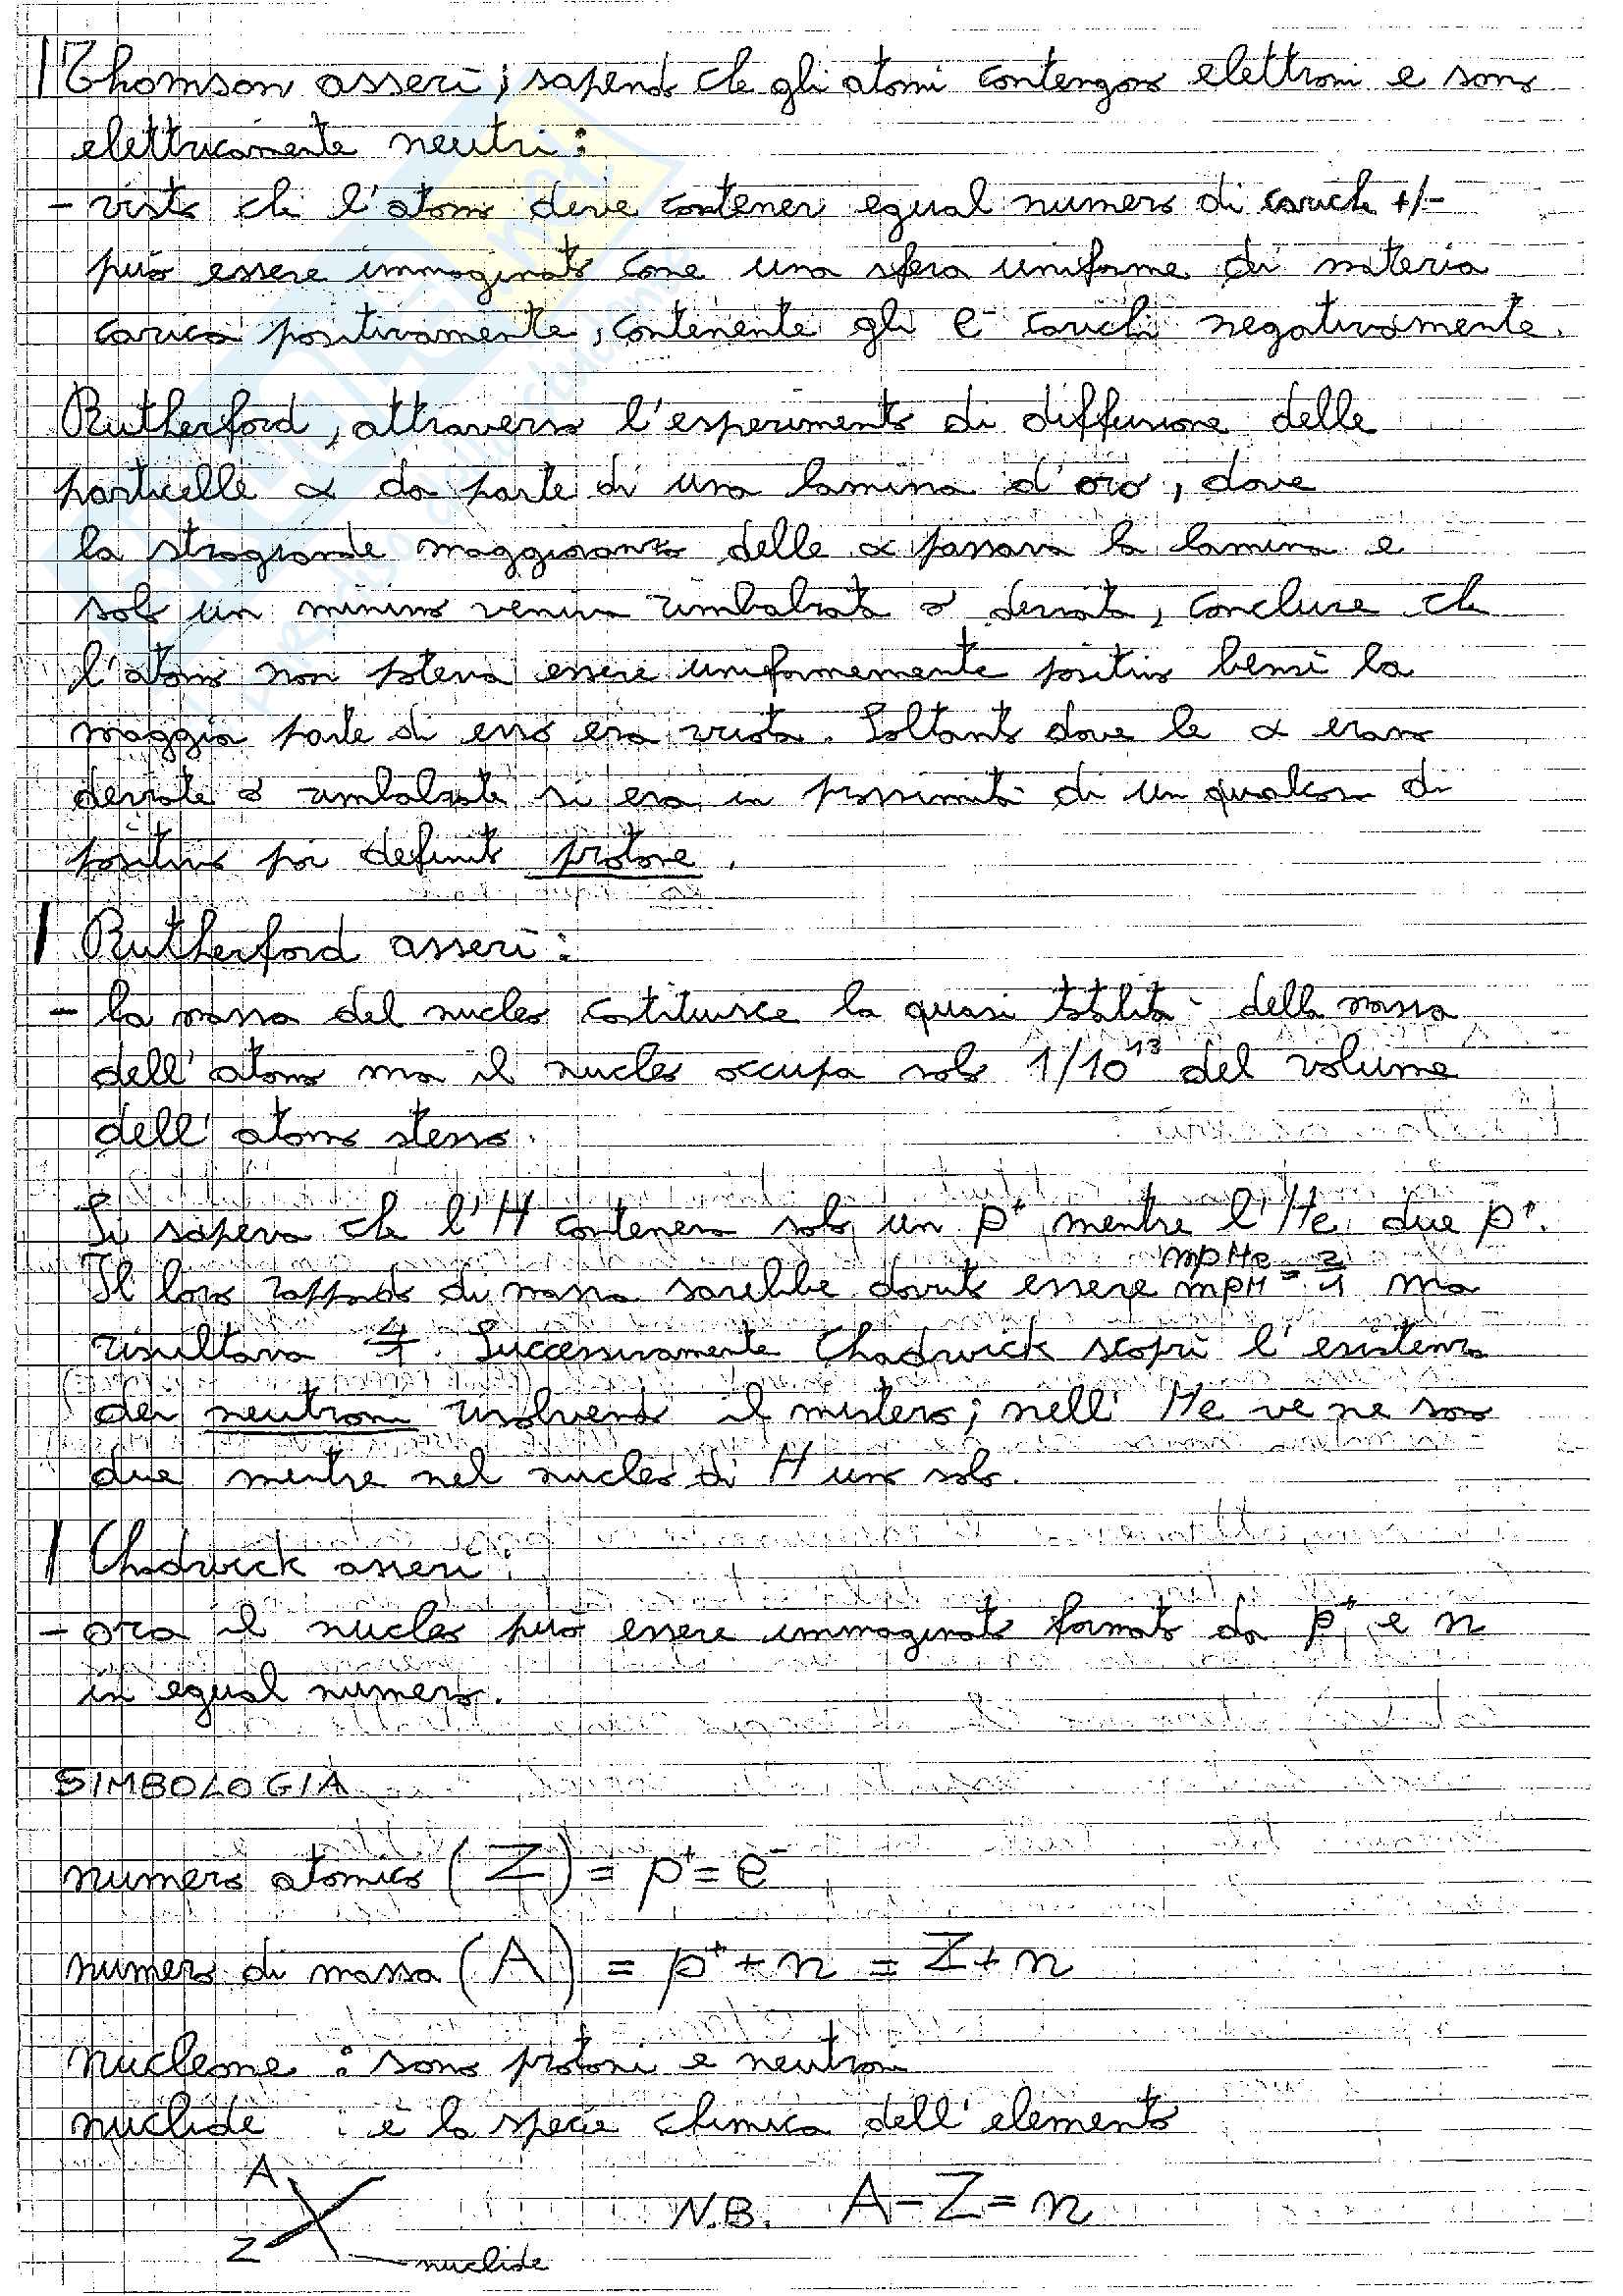 Thomson asserì, sapendo che gli atomi contengono elettroni e sono
elettricamente neutri:
- visto che l'atomo deve contenere egual numero di cariche +/-
può essere immaginato come una sfera uniforme di materia
carica positivamente, contenente gli e⁻ carichi negativamente.
Rutherford, attraverso l'esperimento di diffusione delle
particelle α da parte di una lamina d'oro, dove
la stragrande maggioranza delle α passava la lamina e
solo un minimo veniva rimbalzata o deviata, concluse che
l'atomo non poteva essere uniformemente positivo bensì la
maggior parte di esso era vuota. Soltanto dove le α erano
deviate o rimbalzate si era in prossimità di un qualcosa di
positivo poi definito protone.
Rutherford asserì:
- la massa del nucleo costituisce la quasi totalità della massa
dell'atomo ma il nucleo occupa solo 1/10¹³ del volume
dell'atomo stesso.
Si sapeva che l'H conteneva solo un p⁺ mentre l'He due p⁺.
Il loro rapporto di massa sarebbe dovuto essere mpHe/mpH = 2/1 ma
risultava 4/1. Successivamente Chadwick scoprì l'esistenza
dei neutroni risolvendo il mistero; nell'He ve ne sono
due mentre nel nucleo di H uno solo.
Chadwick asserì:
- ora il nucleo può essere immaginato formato da p⁺ e n
in egual numero.
SIMBOLOGIA
numero atomico (Z) = p⁺ = e⁻
numero di massa (A) = p⁺ + n = Z + n
nucleone : sono protoni e neutroni
nuclide : è la specie chimica dell'elemento
A
N.B. A - Z = n
Z
nuclide